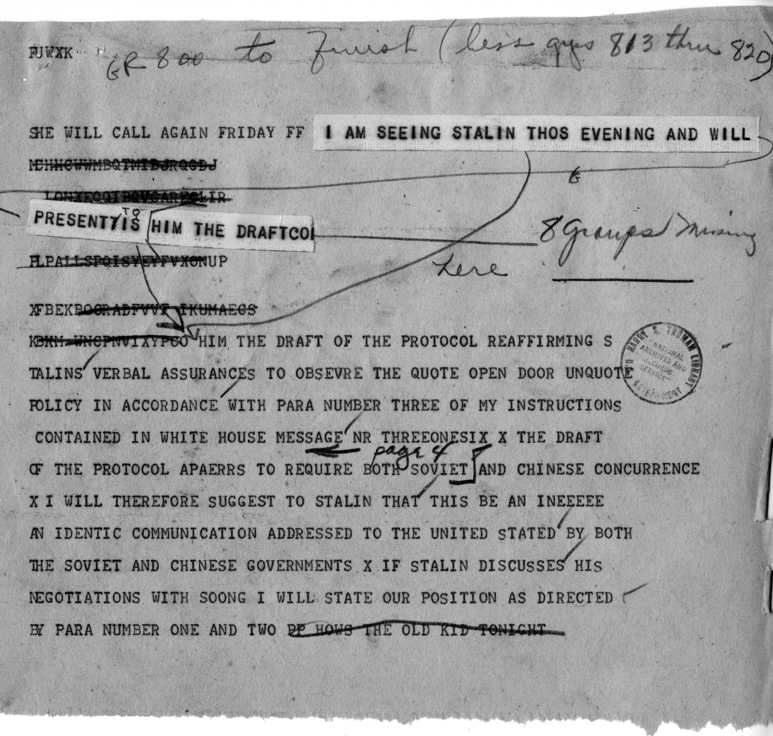 PJWXK
GR 800 to Finish (less grps 813 thru 820)
SHE WILL CALL AGAIN FRIDAY FF I AM SEEING STALIN THOS EVENING AND WILL
PRESENT/IS TO HIM THE DRAFTCOI
8 Groups Missing
here
HIM THE DRAFT OF THE PROTOCOL REAFFIRMING S
TALINS VERBAL ASSURANCES TO OBSEVRE THE QUOTE OPEN DOOR UNQUOTE
POLICY IN ACCORDANCE WITH PARA NUMBER THREE OF MY INSTRUCTIONS
CONTAINED IN WHITE HOUSE MESSAGE NR THREEONESIX X THE DRAFT
page 4
OF THE PROTOCOL APAERRS TO REQUIRE BOTH SOVIET AND CHINESE CONCURRENCE
X I WILL THEREFORE SUGGEST TO STALIN THAT THIS BE AN INEEEEE
AN IDENTIC COMMUNICATION ADDRESSED TO THE UNITED STATED BY BOTH
THE SOVIET AND CHINESE GOVERNMENTS X IF STALIN DISCUSSES HIS
NEGOTIATIONS WITH SOONG I WILL STATE OUR POSITION AS DIRECTED
BY PARA NUMBER ONE AND TWO PP HOWS THE OLD KID TONIGHT
HARRY S. TRUMAN LIBRARY
"NATIONAL
ARCHIVES AND
RECORDS
SERVICE"